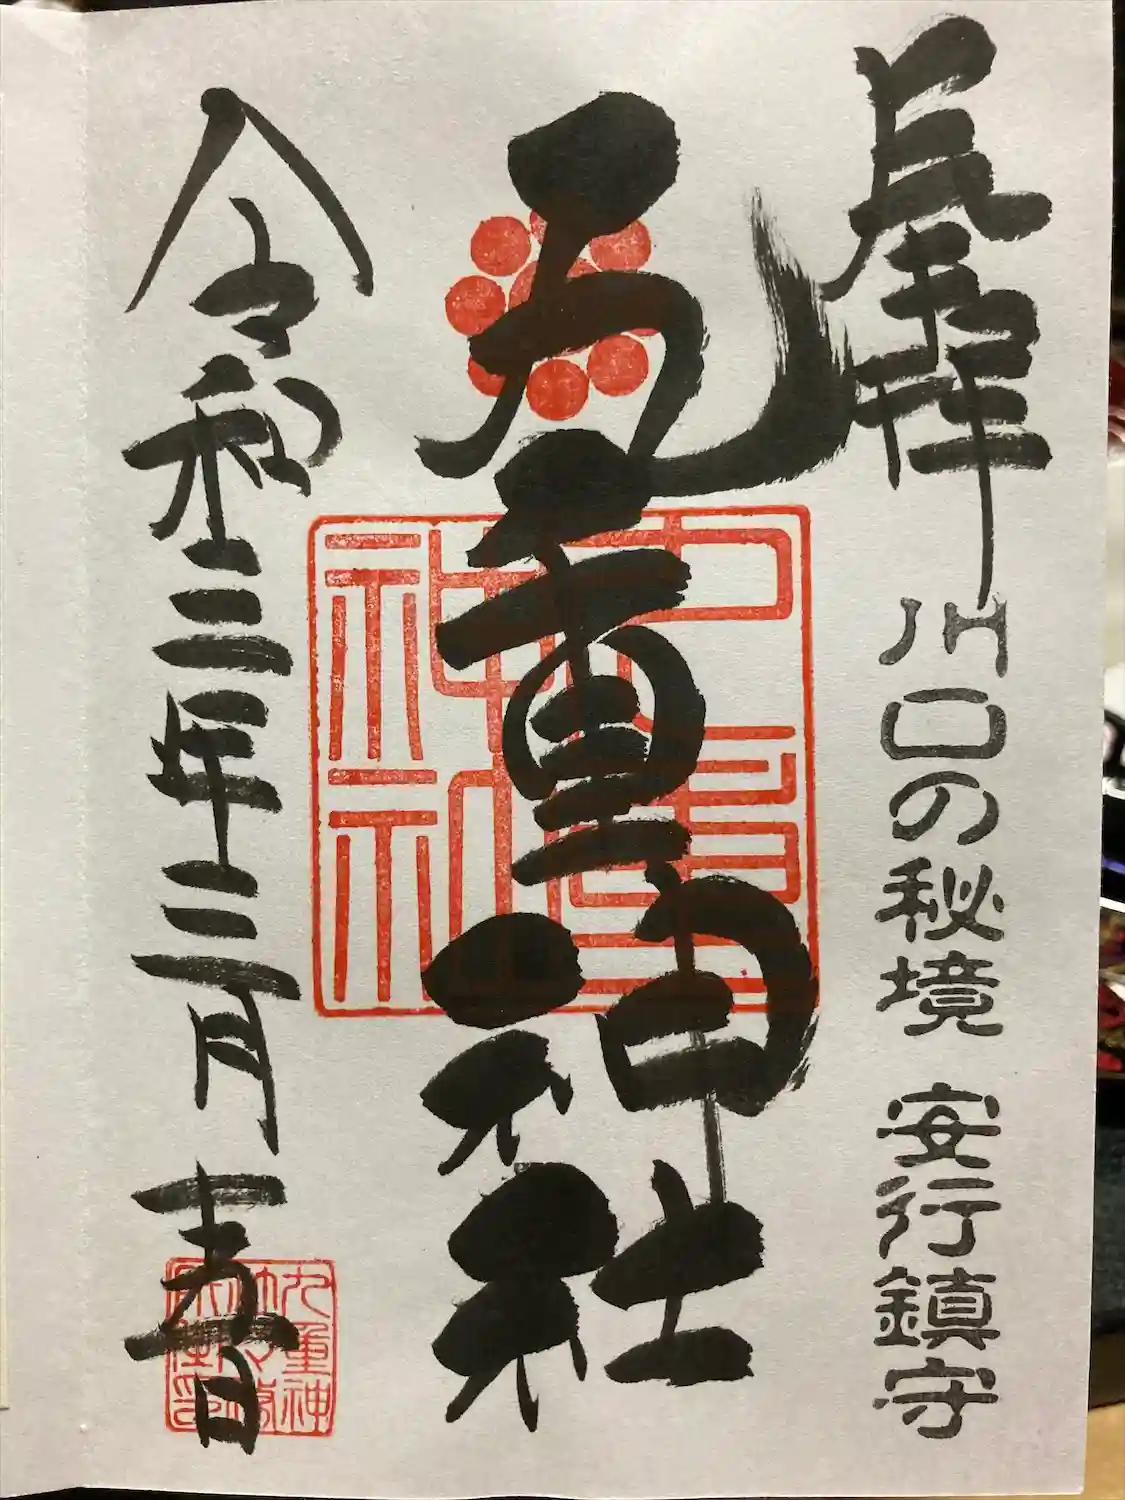 奉拝
川口の秘境 安行鎮守
九重神社
九重
神社
令和三年三月
九重神